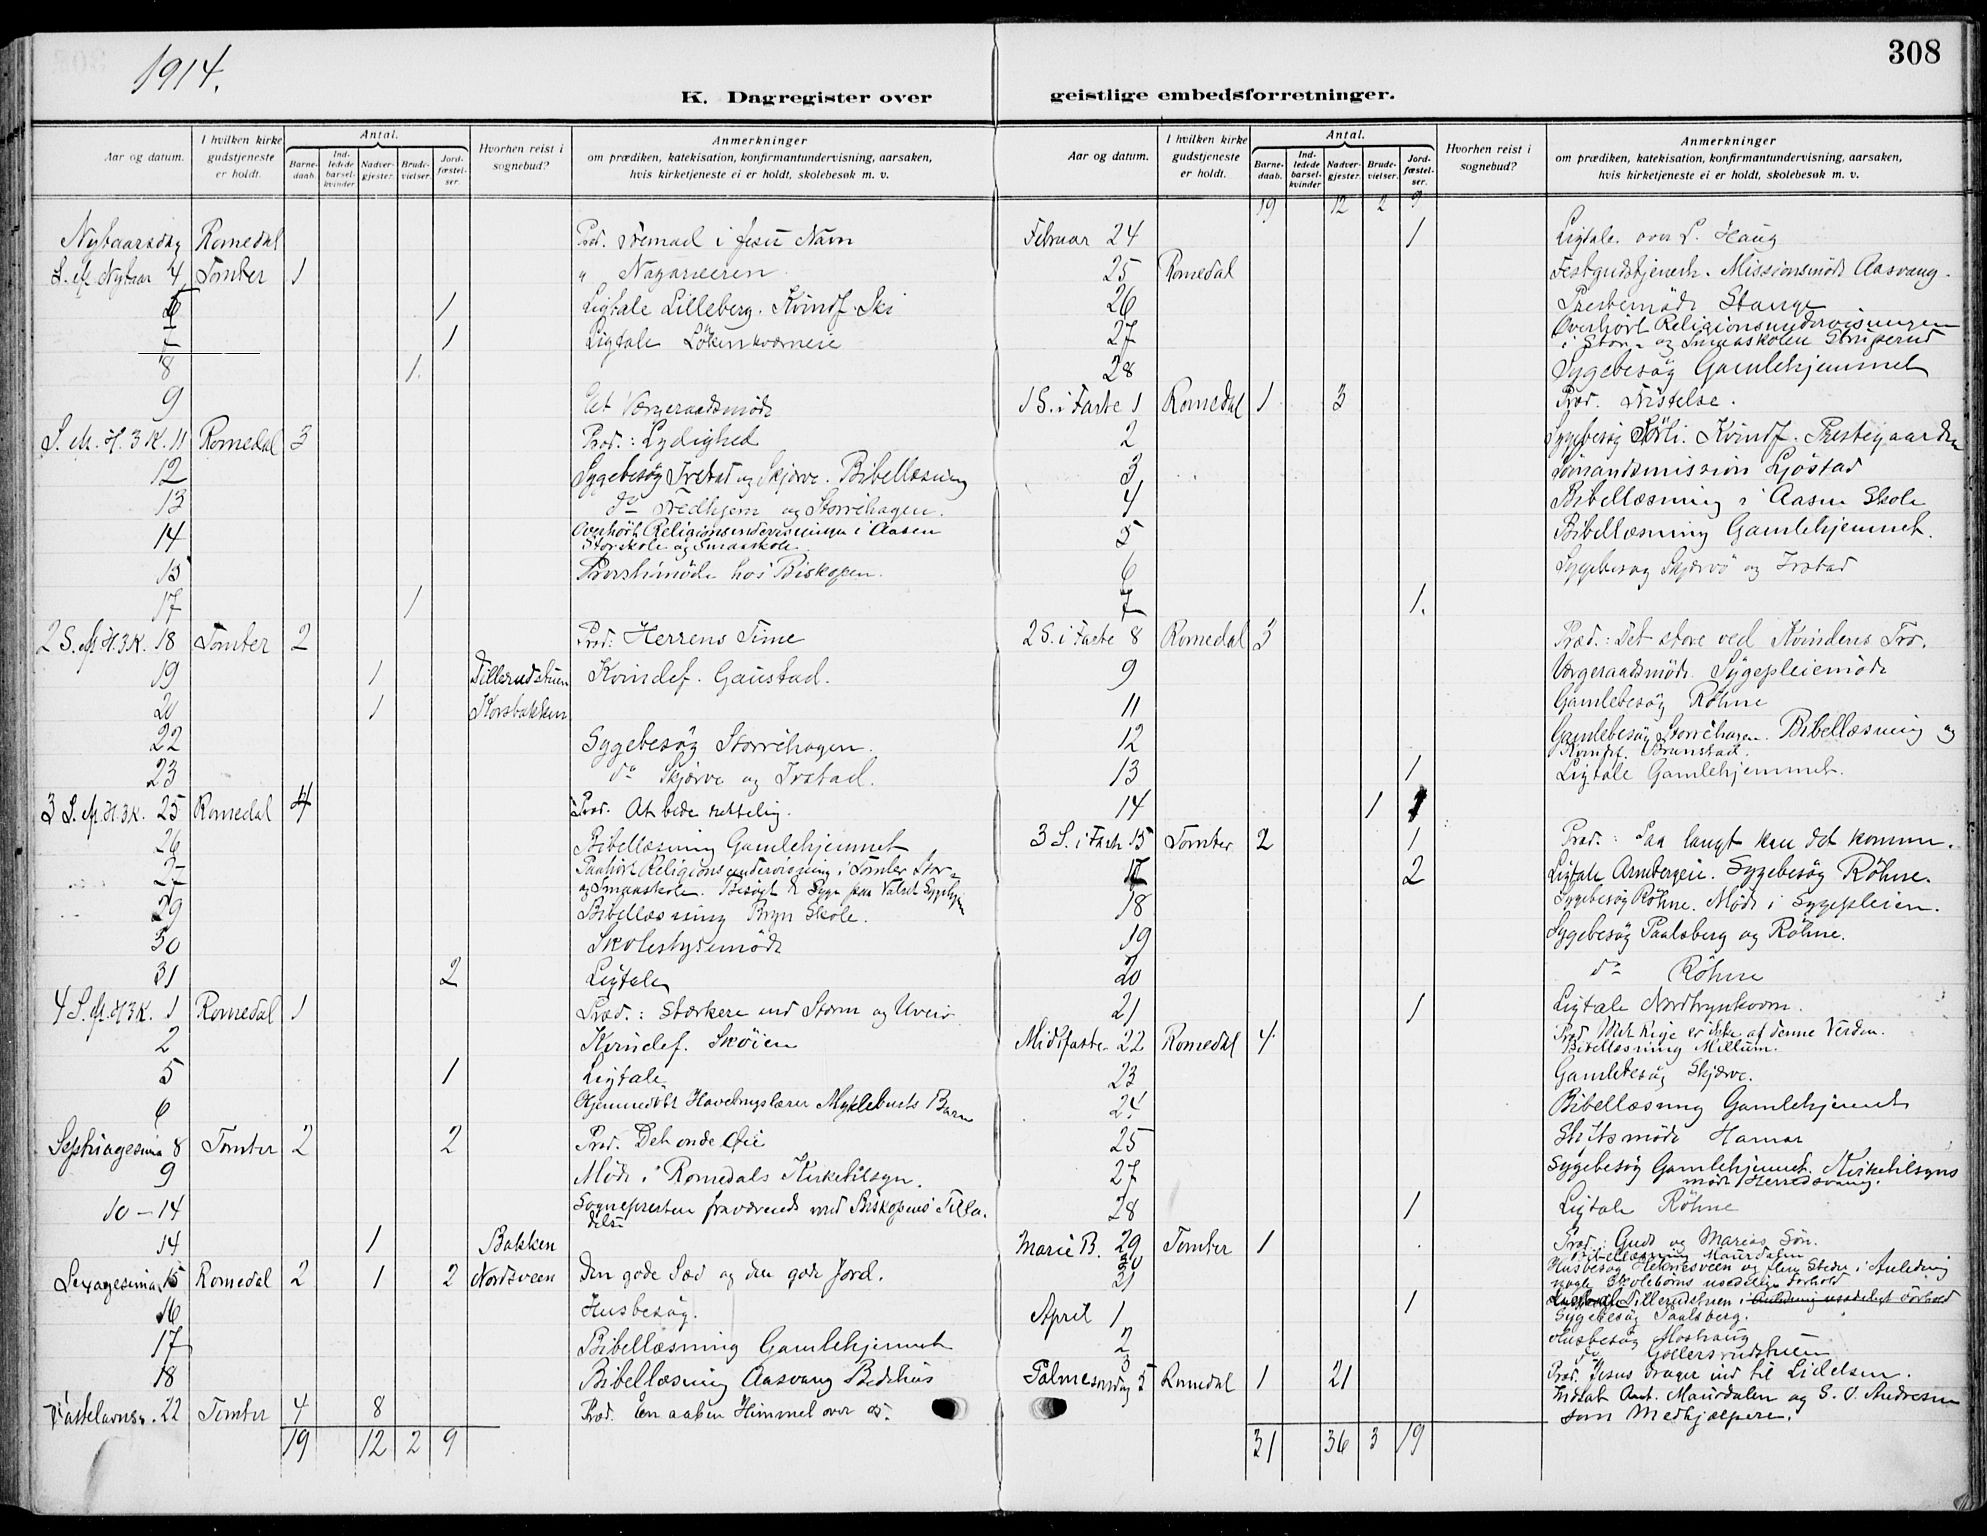 1914.
308
K. Dagregister over
geistlige embedsforretninger.
Aar og datum.
I hvilken kirke gudstjeneste er holdt.
Antal.
Barne-daab.
Ind-ledede barsel-kvinder
Nadver-gjester.
Brude-vielser.
Jord-fæstel-ser.
Hvorhen reist i sognebud?
Anmerkninger
om prædiken, katekisation, konfirmantundervisning, aarsaken,
hvis kirketjeneste ei er holdt, skolebesøk m. v.
Nytaarsdag Romedal Præd. Fremad i Jesu Navn
S. ef Nytaar 4 Tomter 1 " Nazaræeren
1 Ligtale Lilleberg. Kvindf Ski
1 Ligtale
8 1.
9 Værgeraadsmøde
S. e. H. 3 K. 11 Romedal 3 Præd.: Lydighed
12 Sygebesøg Frestad og Skjærve. Bibellæsning
13 do og Storrehagen.
14 Overhørt Religionsundervisningen i Aasen
Storskole og Smaaskole.
15 hos Biskopen.
17 1
2 S. ef H. 3 K. 18 Tomter 2 Præd. Herrens Time
19 1 Tillerudstuen Kvindef. Gaustad.
20 1 Korsbakken
22 Sygebesøg Storrehagen.
23 do Skjærve og
3 S. ef. H. 3 K. 25 Romedal 4 Præd. At bede rettelig.
26 Bibellæsning Gamlehjemmet
27 Paahørt Religionsundervisning i Tomter Stor-
og Smaaskole. Besøgt
29 Bibellæsning Bryn Skole.
30 Skolestyremøde
31 2 Ligtale
4 S. ef. H 3 K. 1 Romedal 1 Præd.: Stærkere end Storm og Uveir
2 Kvindef. Skøien
5 1 Ligtale
6 Hjemmedøbt Myklebusts Barn
Septuagesima 8 Tomter 2 2 Præd. Det onde Øie
9 Møde i Romedals Kirketilsyn.
10 – 14 Sognepresten fraværende med Biskopens Tilla-
delse
14 1 Bakken
Sexagesima 15 Romedal 2 1 2 Nordsveen Den gode Sæd og den gode Jord.
16 Husbesøg.
17 Bibellæsning Gamlehjemmet
18 Bibellæsning Aasvang Bedehus
Fastelavns. 22 Tomter 4 8 Præd. En aaben Himmel over os.
19 12 2 9
Aar og datum.
I hvilken kirke gudstjeneste er holdt.
Antal.
Barne-daab.
Ind-ledede barsel-kvinder
Nadver-gjester.
Brude-vielser.
Jord-fæstel-ser.
Hvorhen reist i sognebud?
Anmerkninger
om prædiken, katekisation, konfirmantundervisning, aarsaken,
hvis kirketjeneste ei er holdt, skolebesøk m. v.
19 12 2 9
Februar 24 1 Ligtale over L. Haug
25 Romedal Festgudstjeneste. Missionsmøde Aasvang.
26 Prestemøde Stange
27 Overhørt Religionsundervisningen
i Stor- og Smaaskolen
28 Sygebesøg Gamlehjemmet
1 S. i Faste 1 Romedal 1 3 Præd. Fristelse.
2 Sygebesøg Sørli. Kvindf. Prestegaarden
3 Sømandsmission Ljøstad
4 Bibellæsning i Aasen Skole
5 Bibellæsning Gamlehjemmet.
6 Sygebesøg Skjærve og
7 1.
2 S. i Faste 8 Romedal 3 Præd.: Det store ved Kvindens Tro.
9 Værgeraadsmøde. Sygepleiemøde
11 Gamlebesøg Røhne
12 Gamlebesøg Storrehagen. Bibellæsning og
Kvindef.
13 1 Ligtale Gamlehjemmet.
14 1 1
3 S. i Faste 15 Tomter 2 1 Præd.: Saa langt kan det komme.
17 2 Ligtale Sygebesøg Røhne.
18 Sygebesøg Røhne. Møde i Sygepleien.
19 Sygebesøg Paalsberg og Røhne.
20 do Røhne
21 1 Ligtale
Midtfaste 22 Romedal 4 Præd Mit Rige er ikke af denne Verden.
Bibellæsning Millum.
23 Gamlebesøg Skjærve.
24 Bibellæsning Gamlehjemmet
25 Stiftsmøde Hamar
27 Sygebesøg Gamlehjemmet. Kirketilsyns
møde Herredsvang.
28 1 Ligtale Røhne
Marie B. 29 Tomter 1 Præd.: Guds og Marias Søn.
30 Bibellæsning Maurdalen
31 Husbesøg og flere Steder i Anledning
nogle Skolebørns usædelige Forhold
April 1 1 Tillerudstuen i Anledning usædeligt Forhold
Sygebesøg Paalsberg.
2 Husbesøg
3 do
Palmesøndag 5 Romedal 1 21 Præd. Jesus drager ind til Lidelsen.
Maurdalen og S. O. Andresen
som Medhjælpere.
31 36 3 19